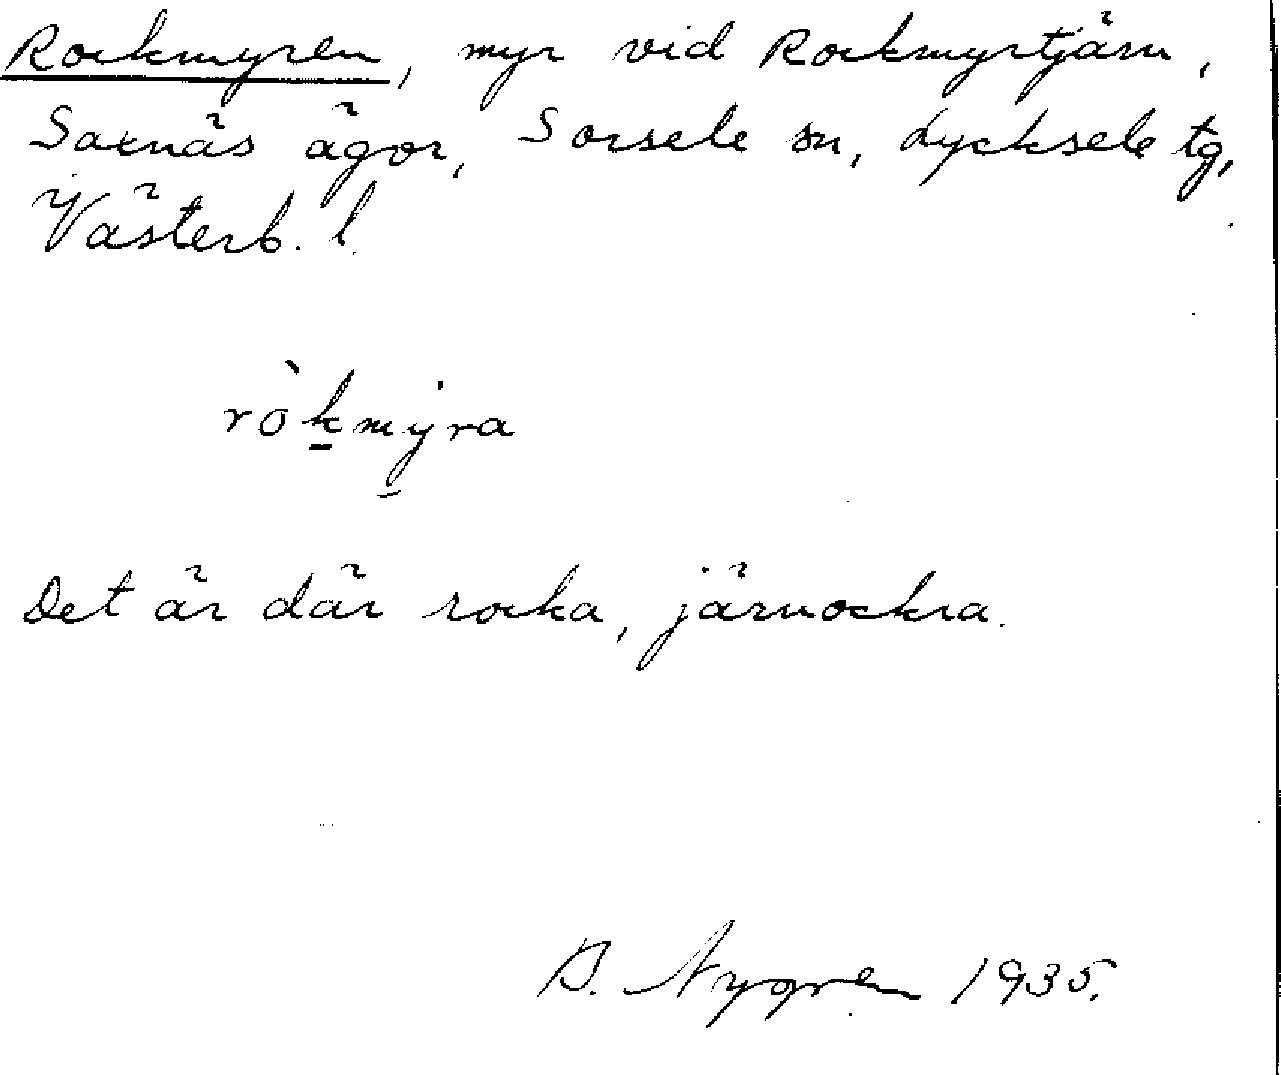 Rockmyren, myr vid Rockmyrtjärn,
Saxnäs ägor, Sorsele sn, Lycksele tg,
Västerb. l.
rò̈kmyra
Det är där rocka, järnockra.
B. Nygren 1935.